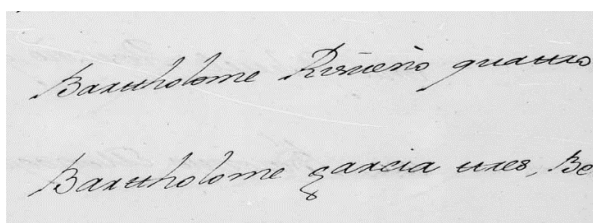 Bartholome Risueño quattro
Bartholome garcia tres, Be